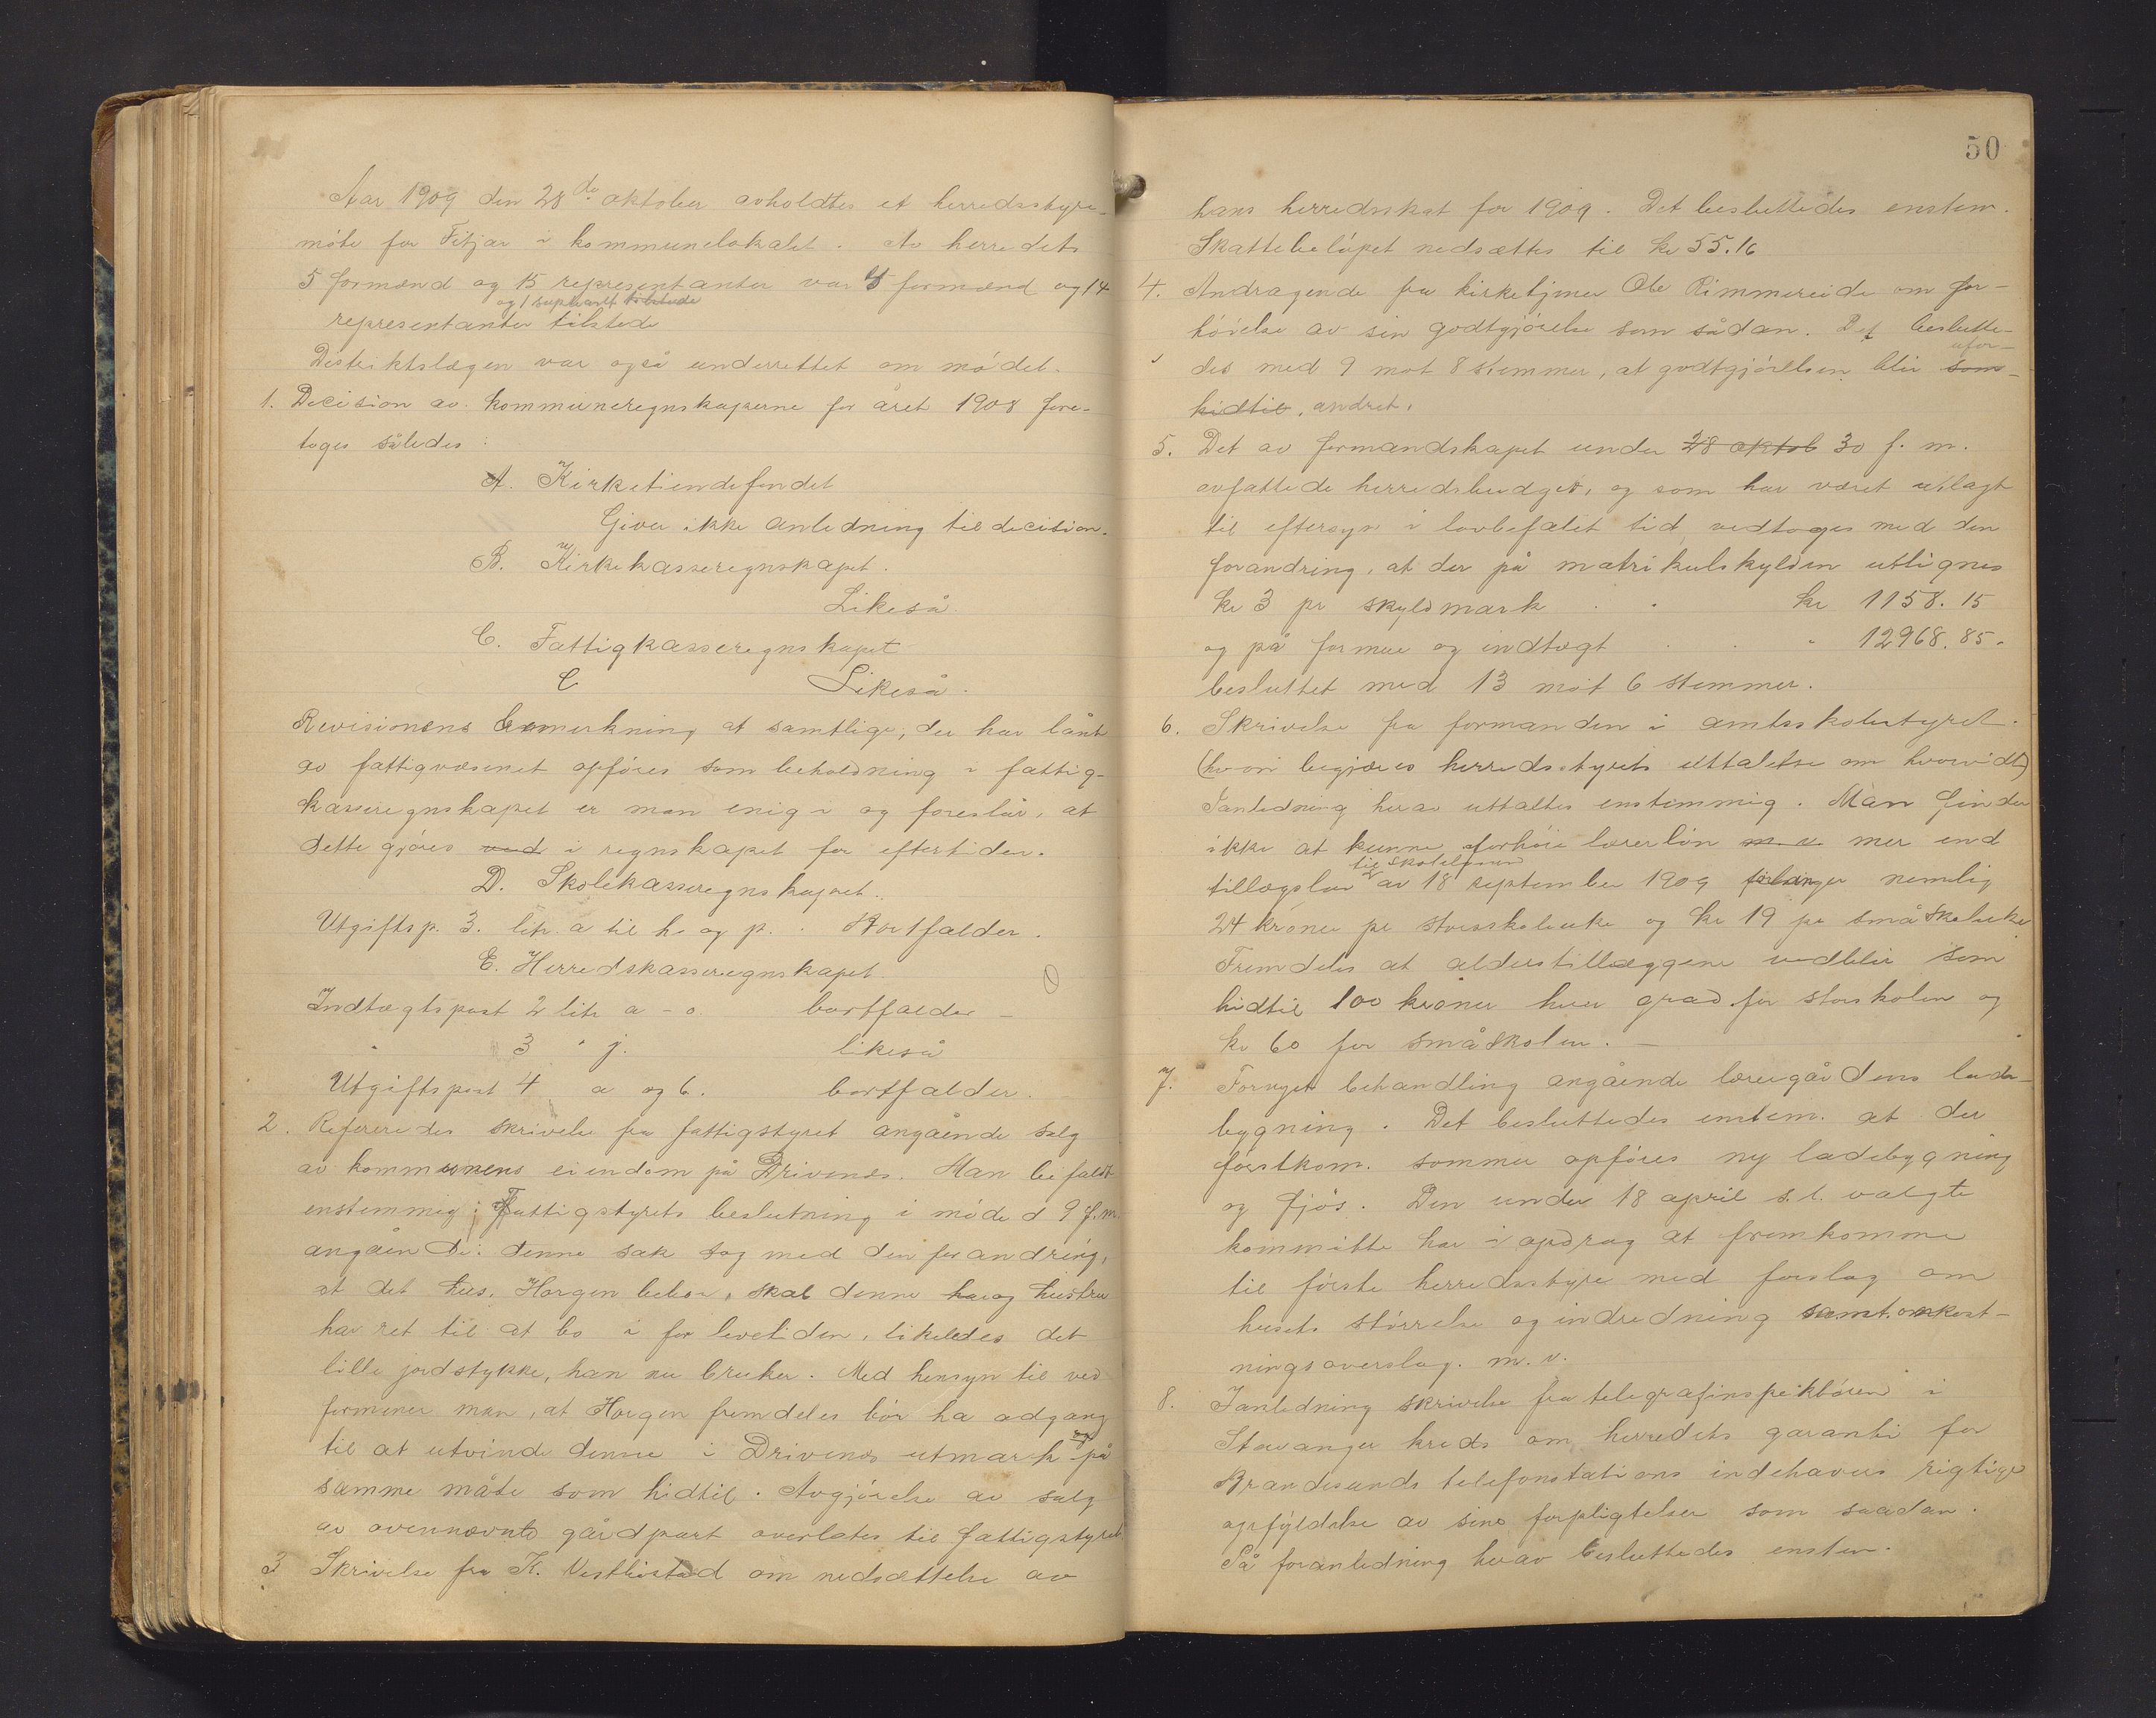 Aar 1909 den 28de oktober avholdtes et herredsstyre-
möte for Fitjar i kommunelokalet. Av herredets
5 formænd og 15 representanter var 5 formænd og 14
og 1 supleant tilstede
representanter tilstede
Distriktslægen var også underrettet om mödet.
1. Decision av kommuneregnskaperne for året 1908 fore-
toges således:
A. Kirketiendefondet
Giver ikke anledning til decision.
B. Kirkekasseregnskapet.
Likeså
C. Fattigkasseregnskapet
C Likeså.
Revisionens bemerkning at samtlige, der har lånt
av fattigvæsenet opföres som beholdning i fattig-
kasseregnskapet er man enig i og foreslår, at
dette gjöres ved i regnskapet for eftertiden.
D. Skolekasseregnskapet.
Utgiftsp. 3. litr. a til h og p. . Bortfalder.
E. Herredskasseregnskapet
Indtægtspost 2 litr a - o. bortfalder -
" 3 " j. likeså
Utgiftspost 4 a og 6. bortfalder.
2. Refereredes skrivelse fra fattigstyret angående salg
av kommunens eiendom på Drivenes. Man bifaldt
enstemmig: Fattigstyrets beslutning i möde d 9 f.m.
angående denne sak dog med den forandring,
at det hus, Horgen bebor, skal denne har og hustru
har ret til at bo i for levetiden, likeledes det
lille jordstykke, han nu bruker. Med hensyn til ved
formener man, at Horgen fremdeles bör ha adgang
til at utvinde denne i Drivenes utmark og på
samme måte som hidtil. Avgjörelse av salg
av ovennævnte gårdpart overlates til fattigstyret.
3 Skrivelse fra K. Vestböstad om nedsættelse av
50
hans herredsskat for 1909. Det besluttedes enstem.
Skattebelöpet nedsættes til kr 55.16
4. Andragende fra kirketjener Ole Rimmereide om for-
höielse av sin godtgjörelse som sådan. Det beslutte-
ufor-
des med 9 mot 8 stemmer, at godtgjörelsen blir som
hidtil, andret.
5. Det av formandskapet under 28 oktob 30 f. m.
avfattede herredsbudget, og som har været utlagt
til eftersyn i lovbefalet tid vedtoges med den
forandring, at der på matrikulskylden utlignes
kr 3 pr skyldmark . . kr 1158.15
og på formue og indtægt . . " 12968.85.
besluttet med 13 mot 6 stemmer.
6. Skrivelse fra formanden i amtsskolestyret.
(hvori begjæres herredsstyrets uttalelse om hvorvidt)
I anledning herav uttaltes enstemmig. Man finder
ikke at kunne forhöie lærerlön m. v. mer end
til skoleloven
tillægslov av 18 september 1909 forlanger nemlig
24 kroner pr storskoleuke og kr 19 pr småskoleuke
Fremdeles at alderstillæggene vedblir som
hidtil 100 kroner hver grad for storskolen og
kr 60 for småskolen. -
7. Fornyet behandling angående lærergårdens lade-
bygning. Det besluttedes enstem. at der
förstkom. sommer opföres ny ladebygning
og fjös. Den under 18 april s. l. valgte
kommitte har i opdrag at fremkomme
til förste herredsstyre med forslag om
husets störrelse og indredning samt omkost-
ningsoverslag. m. v.
8. I anledning skrivelse fra telegrafinspektören i
Stavanger kreds om herredets garanti for
Brandesunds telefonstations indehavers rigtige
opfyldelse av sine forpligtelser som saadan.
På foranledning herav besluttedes enstem.